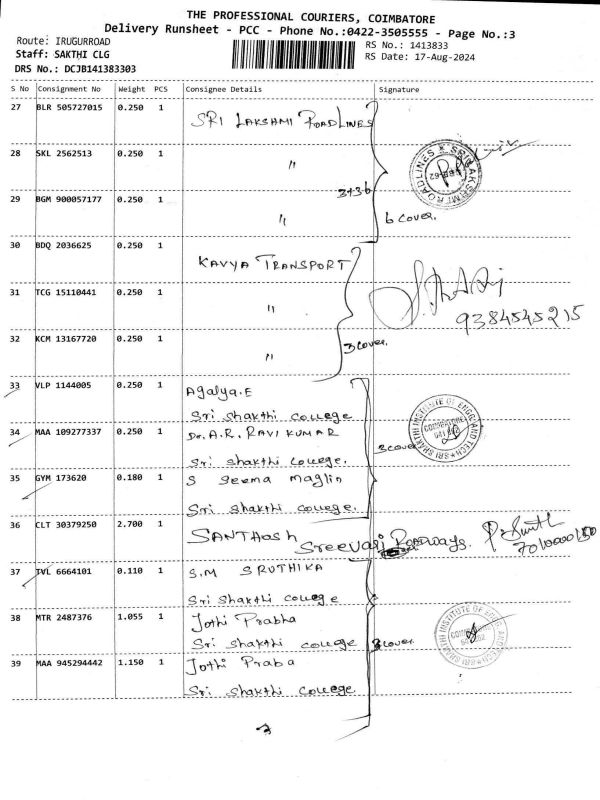 THE PROFESSIONAL COURIERS, COIMBATORE
Delivery Runsheet - PCC - Phone No.:0422-3505555 - Page No.:3
Route: IRUGURROAD
RS No.: 1413833
Staff: SAKTHI CLG
RS Date: 17-Aug-2024
DRS No.: DCJB141383303
S No Consignment No Weight PCS Consignee Details Signature
27 BLR 505727015 0.250 1 SRI LAKSHMI ROADLINES
28 SKL 2562513 0.250 1 "
3+3 6
29 BGM 900057177 0.250 1 " 6 cover.
30 BDQ 2036625 0.250 1 KAVYA TRANSPORT
31 TCG 15110441 0.250 1 "
9384545215
32 KCM 13167720 0.250 1 " 3 cover.
33 VLP 1144005 0.250 1 Agalya.E
Sri Shakthi College
34 MAA 109277337 0.250 1 Dr. A.R. RAVI KUMAR
3 cover
Sri Shakthi College.
35 GYM 173620 0.180 1 S Seema Maglin
Sri Shakthi College.
36 CLT 30379250 2.700 1 SANTHOSH Sreevari Roadways.
37 TVL 6664101 0.110 1 S.M SRUTHIKA
Sri Shakthi College
38 MTR 2487376 1.055 1 Jothi Prabha
Sri Shakthi College 3 cover
39 MAA 945294442 1.150 1 Jothi Praba
Sri Shakthi College
3